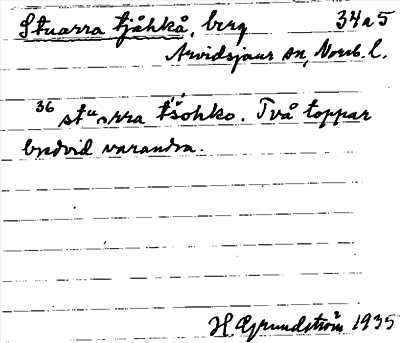 Stuorra tjåhkå, berg 34a5
Arvidsjaur sn, Norrb. l.
36 stuorra tšohko. Två toppar
bredvid varandra.
H. Grundström 1935